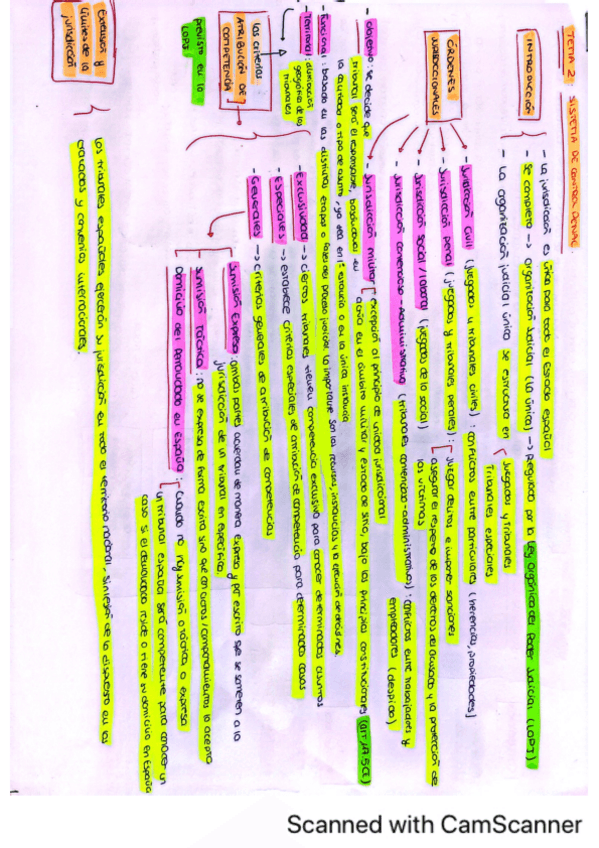 TEMA 2: SISTEMA DE CONTROL PENAL
INTRODUCCIÓN
- La jurisdicción es única para todo el Estado español
- Se completa → organización judicial (la única) → Regulada por la Ley Orgánica del Poder Judicial (LOPJ)
- La organización judicial única se estructura en
Juzgados y tribunales
Tribunales especiales
ÓRDENES JURISDICCIONALES
- Jurisdicción civil (juzgados y tribunales civiles): conflictos entre particulares (herencias, propiedades)
- Jurisdicción penal (juzgados y tribunales penales):
Juzgar delitos e imponer sanciones
asegurar el respeto de los derechos del acusado y la protección de
las víctimas
- Jurisdicción social/laboral (juzgados de lo social)
- Jurisdicción contencioso-administrativa (tribunales contencioso-administrativos): conflictos entre trabajadores y
empleadores (despido)
- Jurisdicción militar
excepción al principio de unidad jurisdiccional
actúa en el ámbito militar y estado de sitio, bajo los principios constitucionales (art 117.5 CE)
los criterios
ATRIBUCIÓN DE COMPETENCIA
previsto en la LOPJ
- objetivo: se decide que
tribunal será el responsable, basándonos en
la cuantía o tipo de asunto, ya sea en 1ª instancia o en la única instancia
- Funcional: basado en las distintas etapas o fases del proceso judicial. Lo importante son los recursos, instancias y la ejecución de decisiones
- Territorial: ubicación
geográfica de los
tribunales
- Exclusividad → ciertos tribunales tienen competencia exclusiva para conocer determinados asuntos
- Especiales → establece criterios especiales de atribución de competencia para determinados casos
- Generales → criterios generales de atribución de competencias
Sumisión Expresa: ambas partes acuerdan de manera expresa y por escrito que se someten a la
jurisdicción de un tribunal en específico
Sumisión Tácita: no se expresa de forma escrita sino que con actos/comportamientos lo acepta
Domicilio del demandado en España:
Cuando no hay sumisión o tácita o expresa
un tribunal español será competente para conocer un
caso si el demandado reside o tiene su domicilio en España
Extensión y límites de la jurisdicción
Los tribunales españoles ejercerán su jurisdicción en todo el territorio nacional, sin lesión de lo dispuesto en los
tratados y convenios internacionales.
Scanned with CamScanner